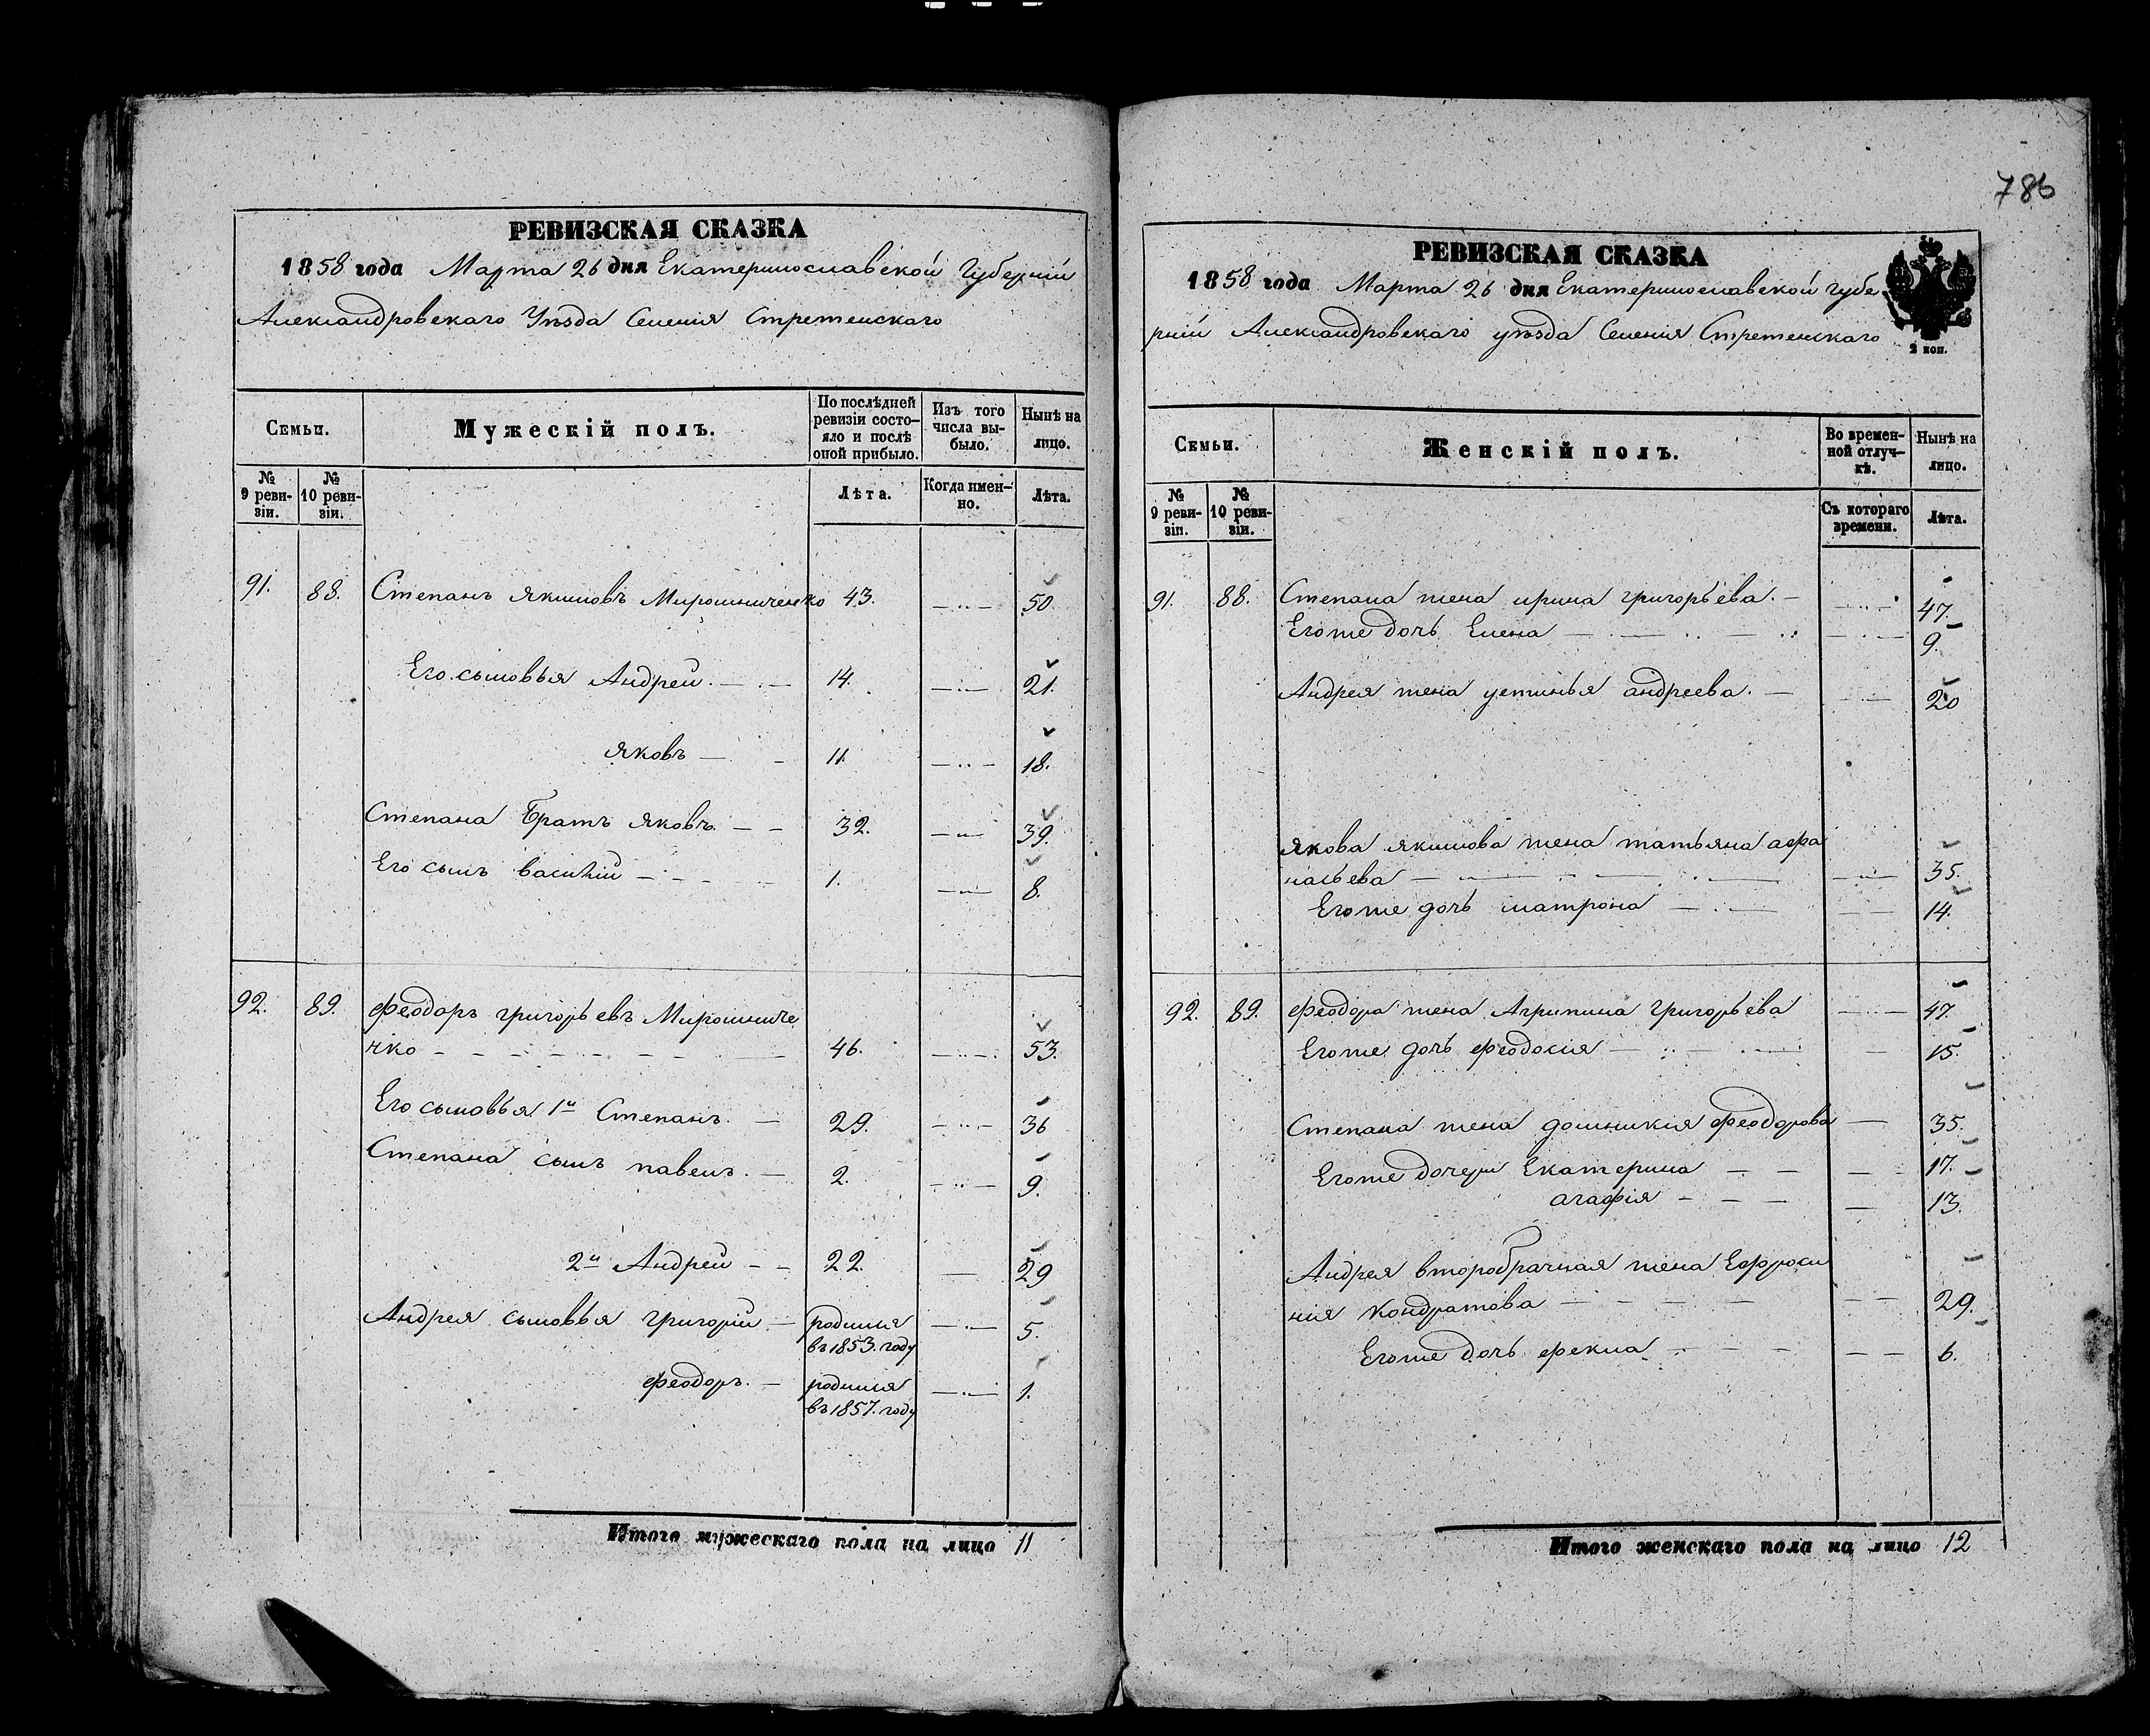 786
РЕВИЗСКАЯ СКАЗКА
1858 года Марта 26 дня Екатеринославской Губерніи
Александровскаго Уѣзда Селенія Стретенскаго
Семьи.
Мужескій полъ.
По послѣдней ревизіи состо-
яло и послѣ оной прибыло.
Изъ того числа вы-
было.
Нынѣ на лицо.
№ 9 реви-
зіи.
№ 10 реви-
зіи.
Лѣта.
Когда имен-
но.
Лѣта.
91. 88. Степанъ Якимовъ Мирошниченко 43. 50.
Его сыновья Андрей. 14. 21.
Яковъ 11. 18.
Степана Братъ Яковъ. 32. 39.
Его сынъ Василій 1. 8.
92. 89. Феодоръ Григорьевъ Мирошниче
нко 46. 53.
Его сыновья 1й Степанъ. 29. 36
Степана сынъ павелъ. 2. 9.
2й Андрей 22. 29
Андрея сыновья григорій родился 5.
въ 1853. году
Феодоръ. родился 1.
въ 1857. году
Итого мужескаго пола на лицо 11
РЕВИЗСКАЯ СКАЗКА
1858 года Марта 26 дня Екатеринославской Губе
рніи Александровскаго уѣзда Селенія Стретенскаго
2 коп.
Семьи.
Женскій полъ.
Во времен-
ной отлуч-
кѣ.
Нынѣ на лицо.
№ 9 реви-
зіи.
№ 10 реви-
зіи.
Съ котораго времени.
Лѣта.
91. 88. Степана жена ирина григорьева. 47.
Егоже дочь Елена 9.
Андрея жена устинья андреева. 20
Якова Якимова жена татьяна афа
насьева 35.
Егоже дочь матрона 14.
92. 89. Феодора жена Агрипина григорьева 47.
Егоже дочь феодосия 15.
Степана жена домникия Феодорова 35.
Егоже дочери Екатерина 17.
агафія 13.
Андрея второбрачная жена Ефроси
ния Кондратова 29.
Егоже дочь фекла 6.
Итого женскаго пола на лицо 12